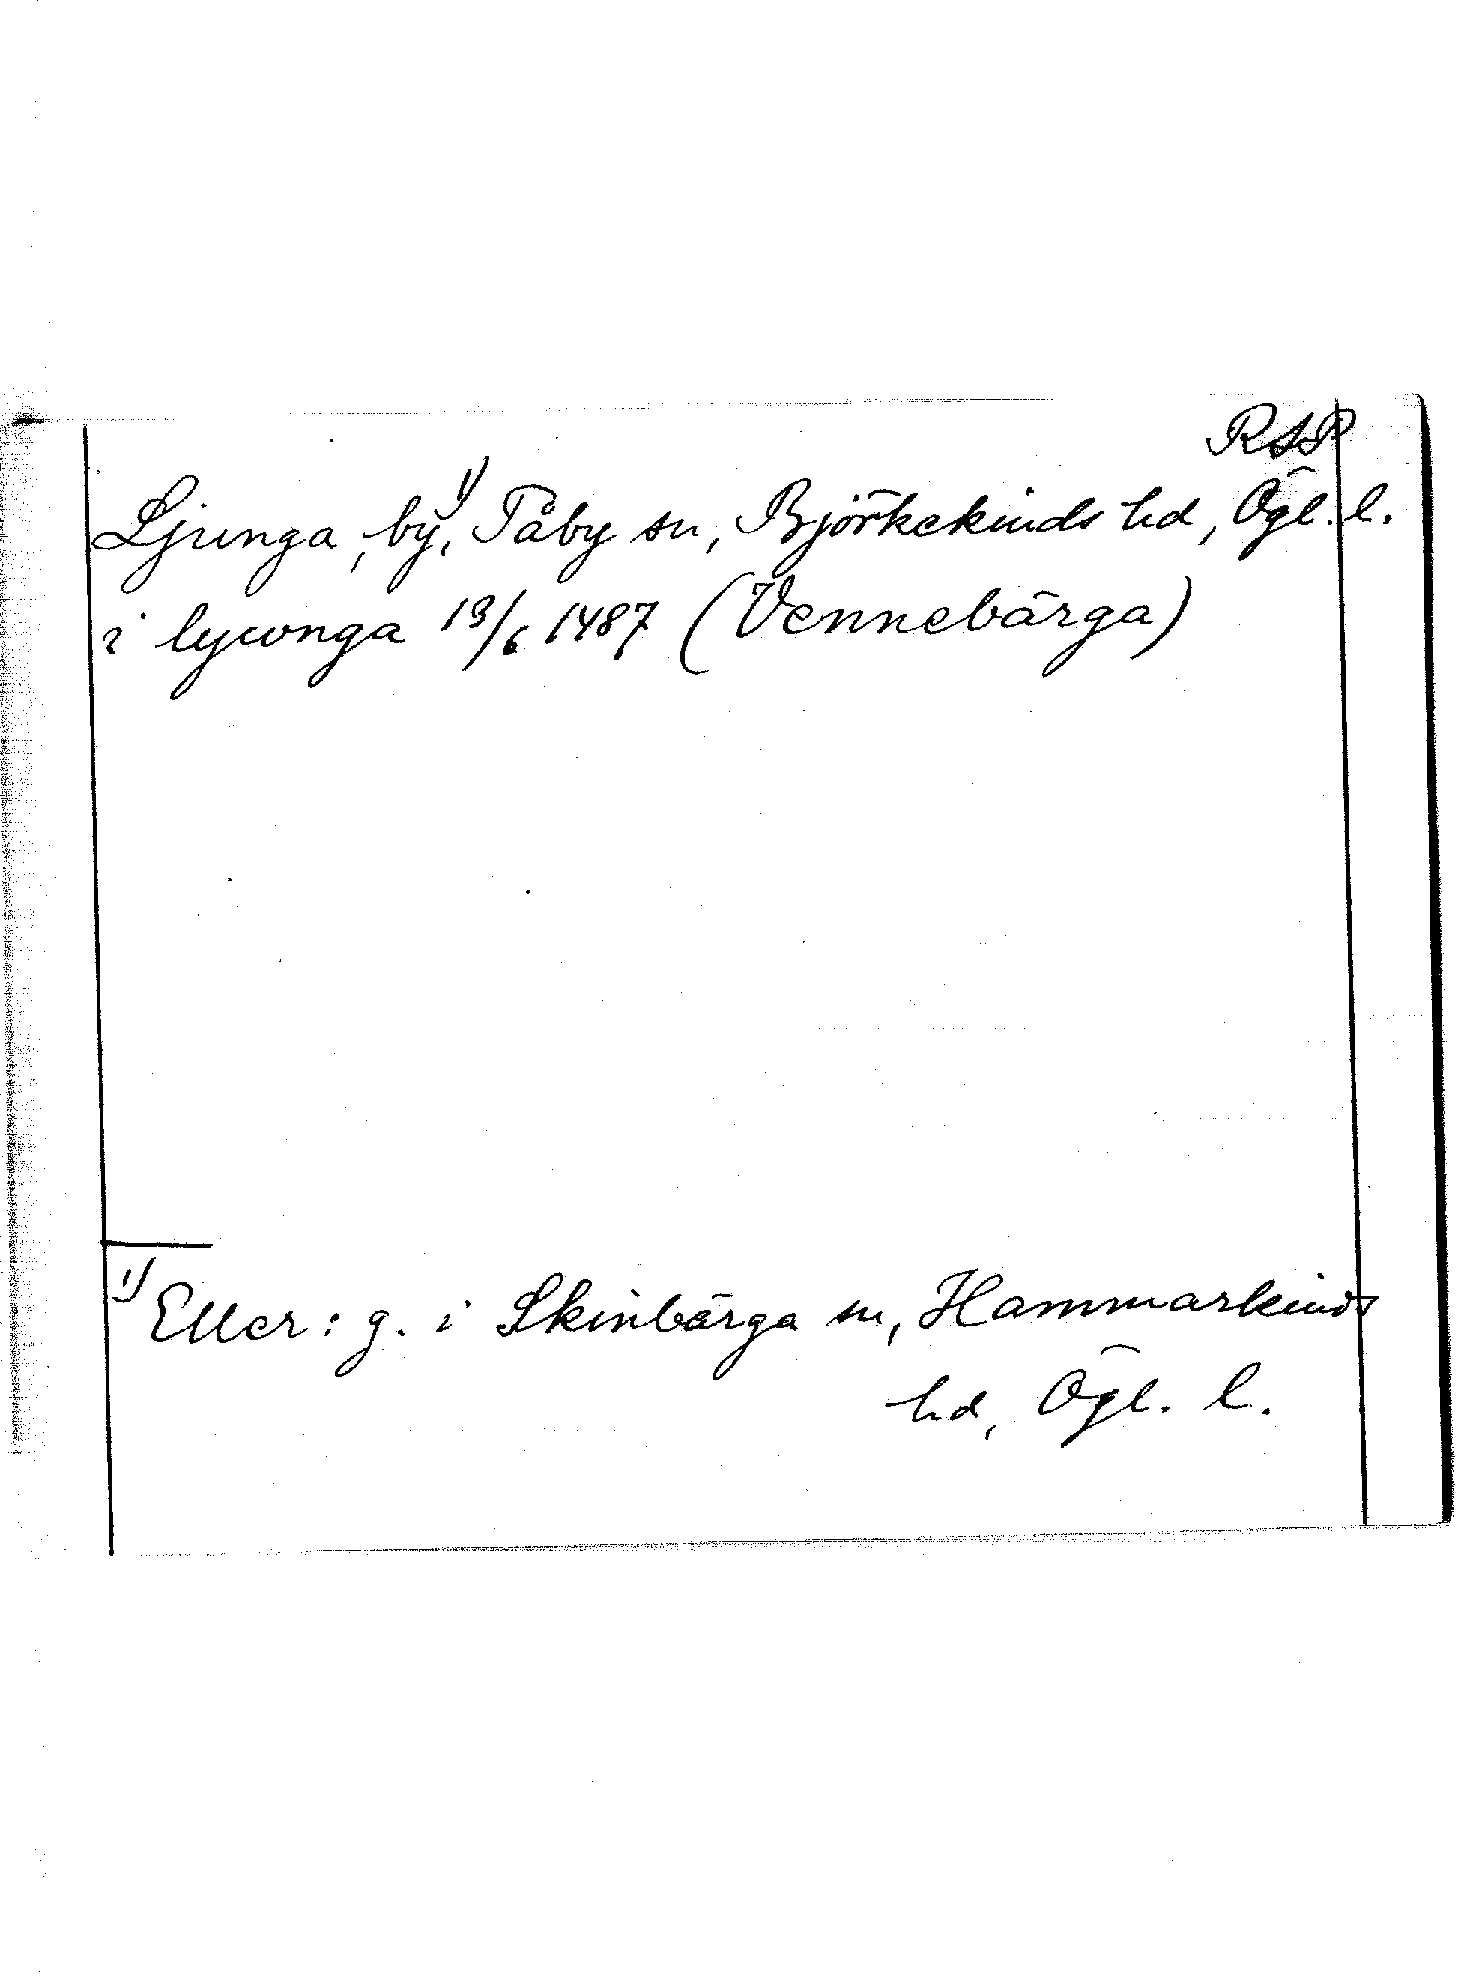 RAP
Ljunga, by¹⁾, Tåby sn, Björkekinds hd, Ögl. l.
i lywnga 13/6 1487 (Vennebärga)
¹⁾ Eller: g. i Skönbärga sn, Hammarkinds
hd, Ögl. l.